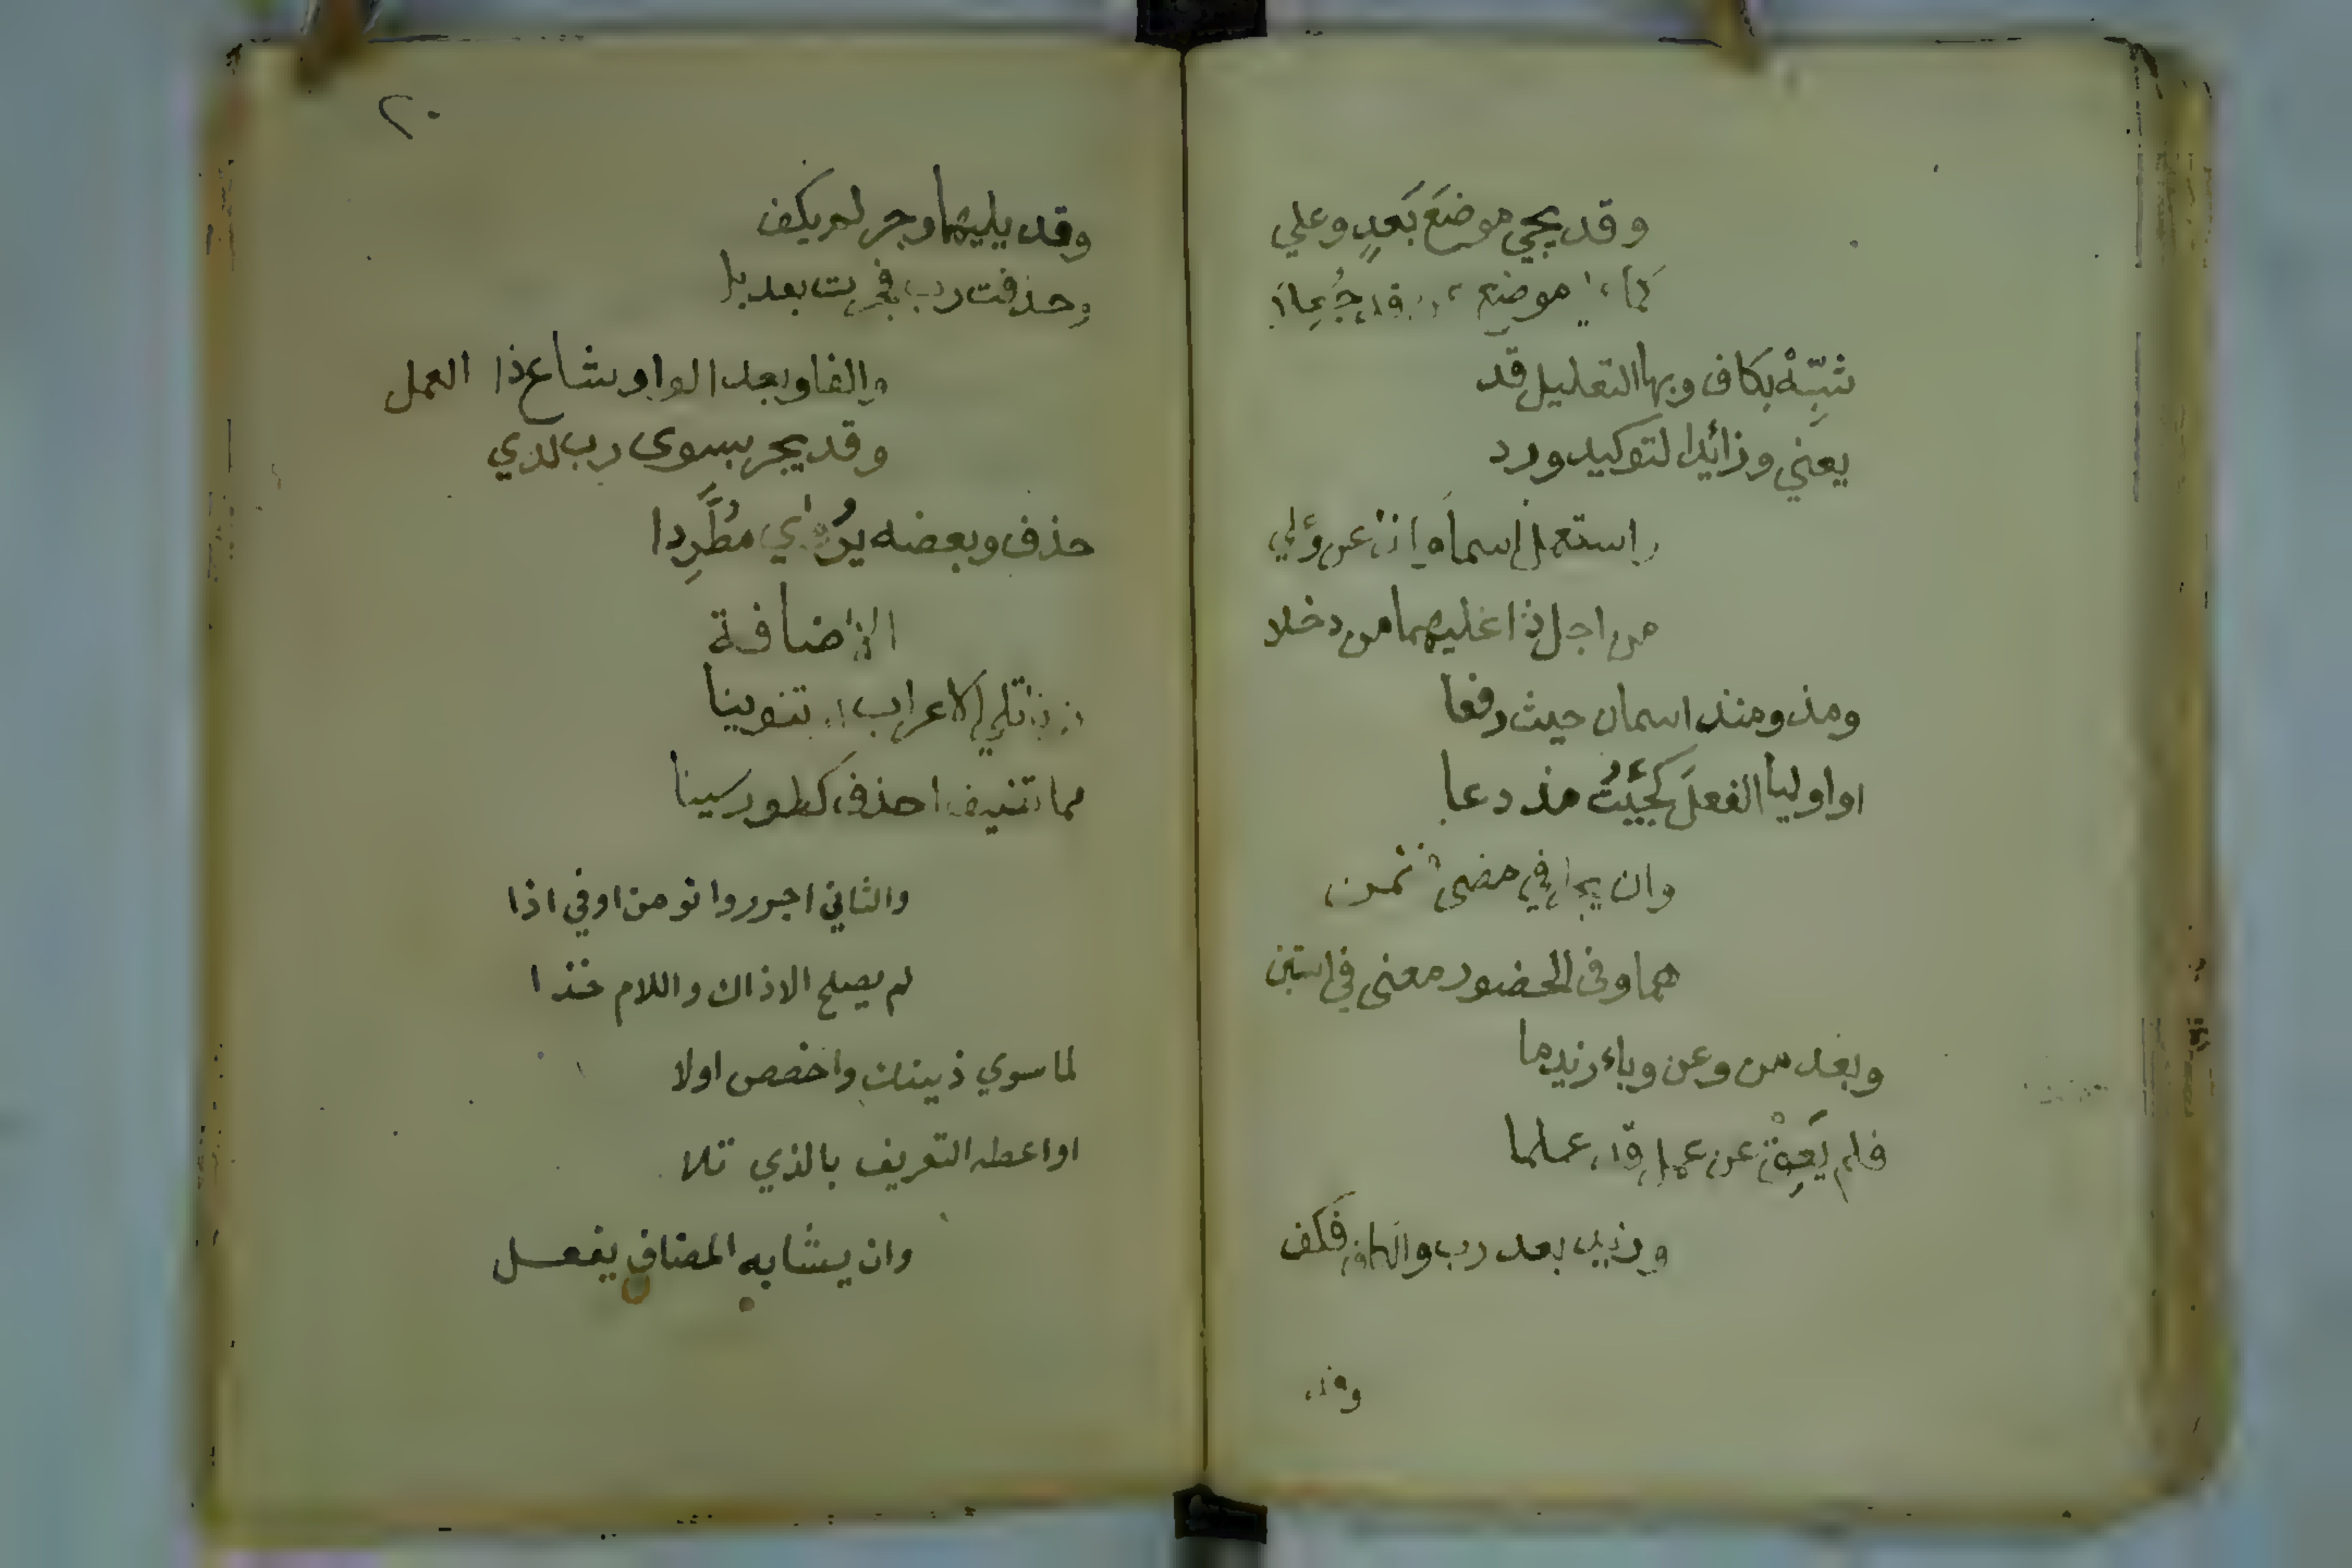 وقد يجي موضعَ بَعدٍ وعلي
كما موضع قد جُعِلا
شبِّهْ بكاف وبها التعليل قد
يعني وزائدا لتوكيد ورد
واستعمل اسماً وإذا عن وعلي
من اجل ذا عليهما من دخلا
ومذ ومنذ اسمان حيث رفعا
او اوليا الفعلَ كجئتُ مذ دعا
وان يجرا في مضى فكمن
هما وفى الحضور معنى في استبن
وبعد من وعن وباء زيد ما
فلم يَعِقْ عن عمل قد علما
وزيد بعد رب والكاف فكف
وقد
٢٠
وقد يليهما وجر لم يكف
وحذفت رب فجرت بعد بل
والفا وبعد الواو شاع ذا العمل
وقد يجر بسوى رب لدي
حذف وبعضه يُرى مطَّرِدا
الاضافة
نونا تلي الاعراب او تنوينا
مما تضيف احذف كطور سينا
والثاني اجرر وانو من او في اذا
لم يصلح الا ذاك واللام خذا
لما سوي ذينك واخصص اولا
او اعطه التعريف بالذي تلا
وان يشابه المضاف يفعل